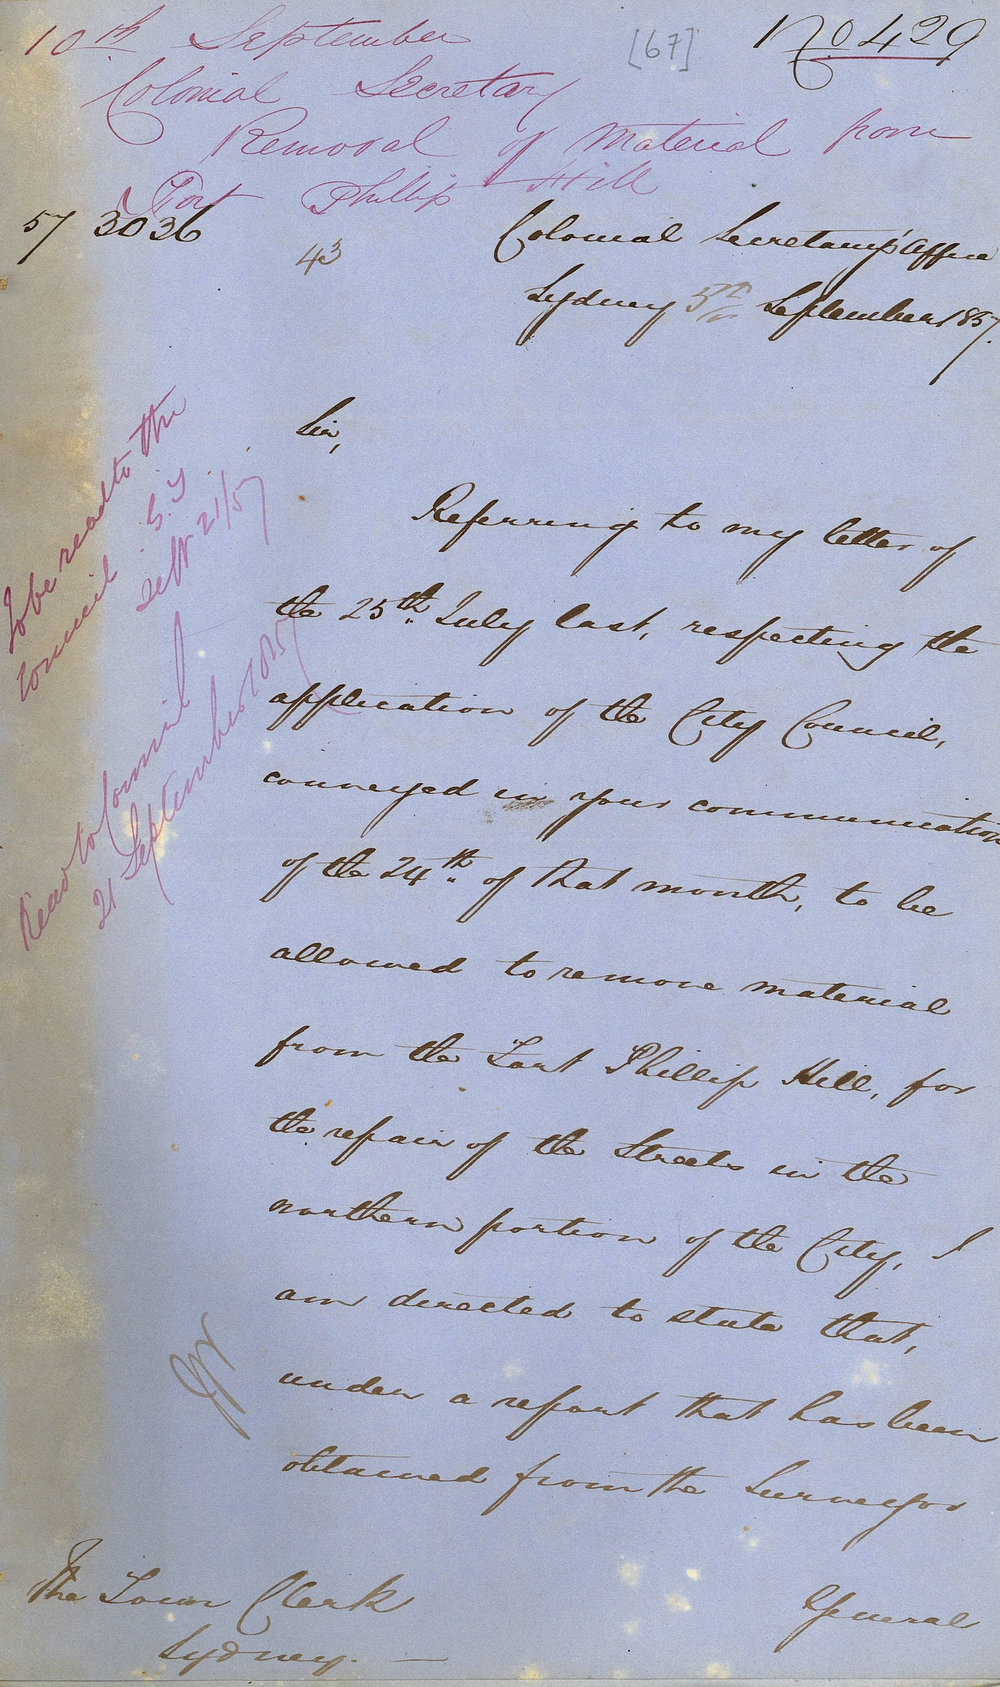 10th September
[67]
No 429
Colonial Secretary
Removal of Material from
Fort Phillip Hill
57 3036
43
Colonial Secretary's Office
Sydney 5th September 1857.
Sir,
Referring to my letter of
the 25th July last, respecting the
application of the City Council,
conveyed in your communication
of the 24th of that month, to be
allowed to remove material
from the Fort Phillip Hill, for
the repair of the Streets in the
northern portion of the City, I
am directed to state that,
under a report that has been
obtained from the Surveyor
General
The Town Clerk
Sydney.
To be read to the
Council
Sepr 21/57
Read to Council
21 September 1857